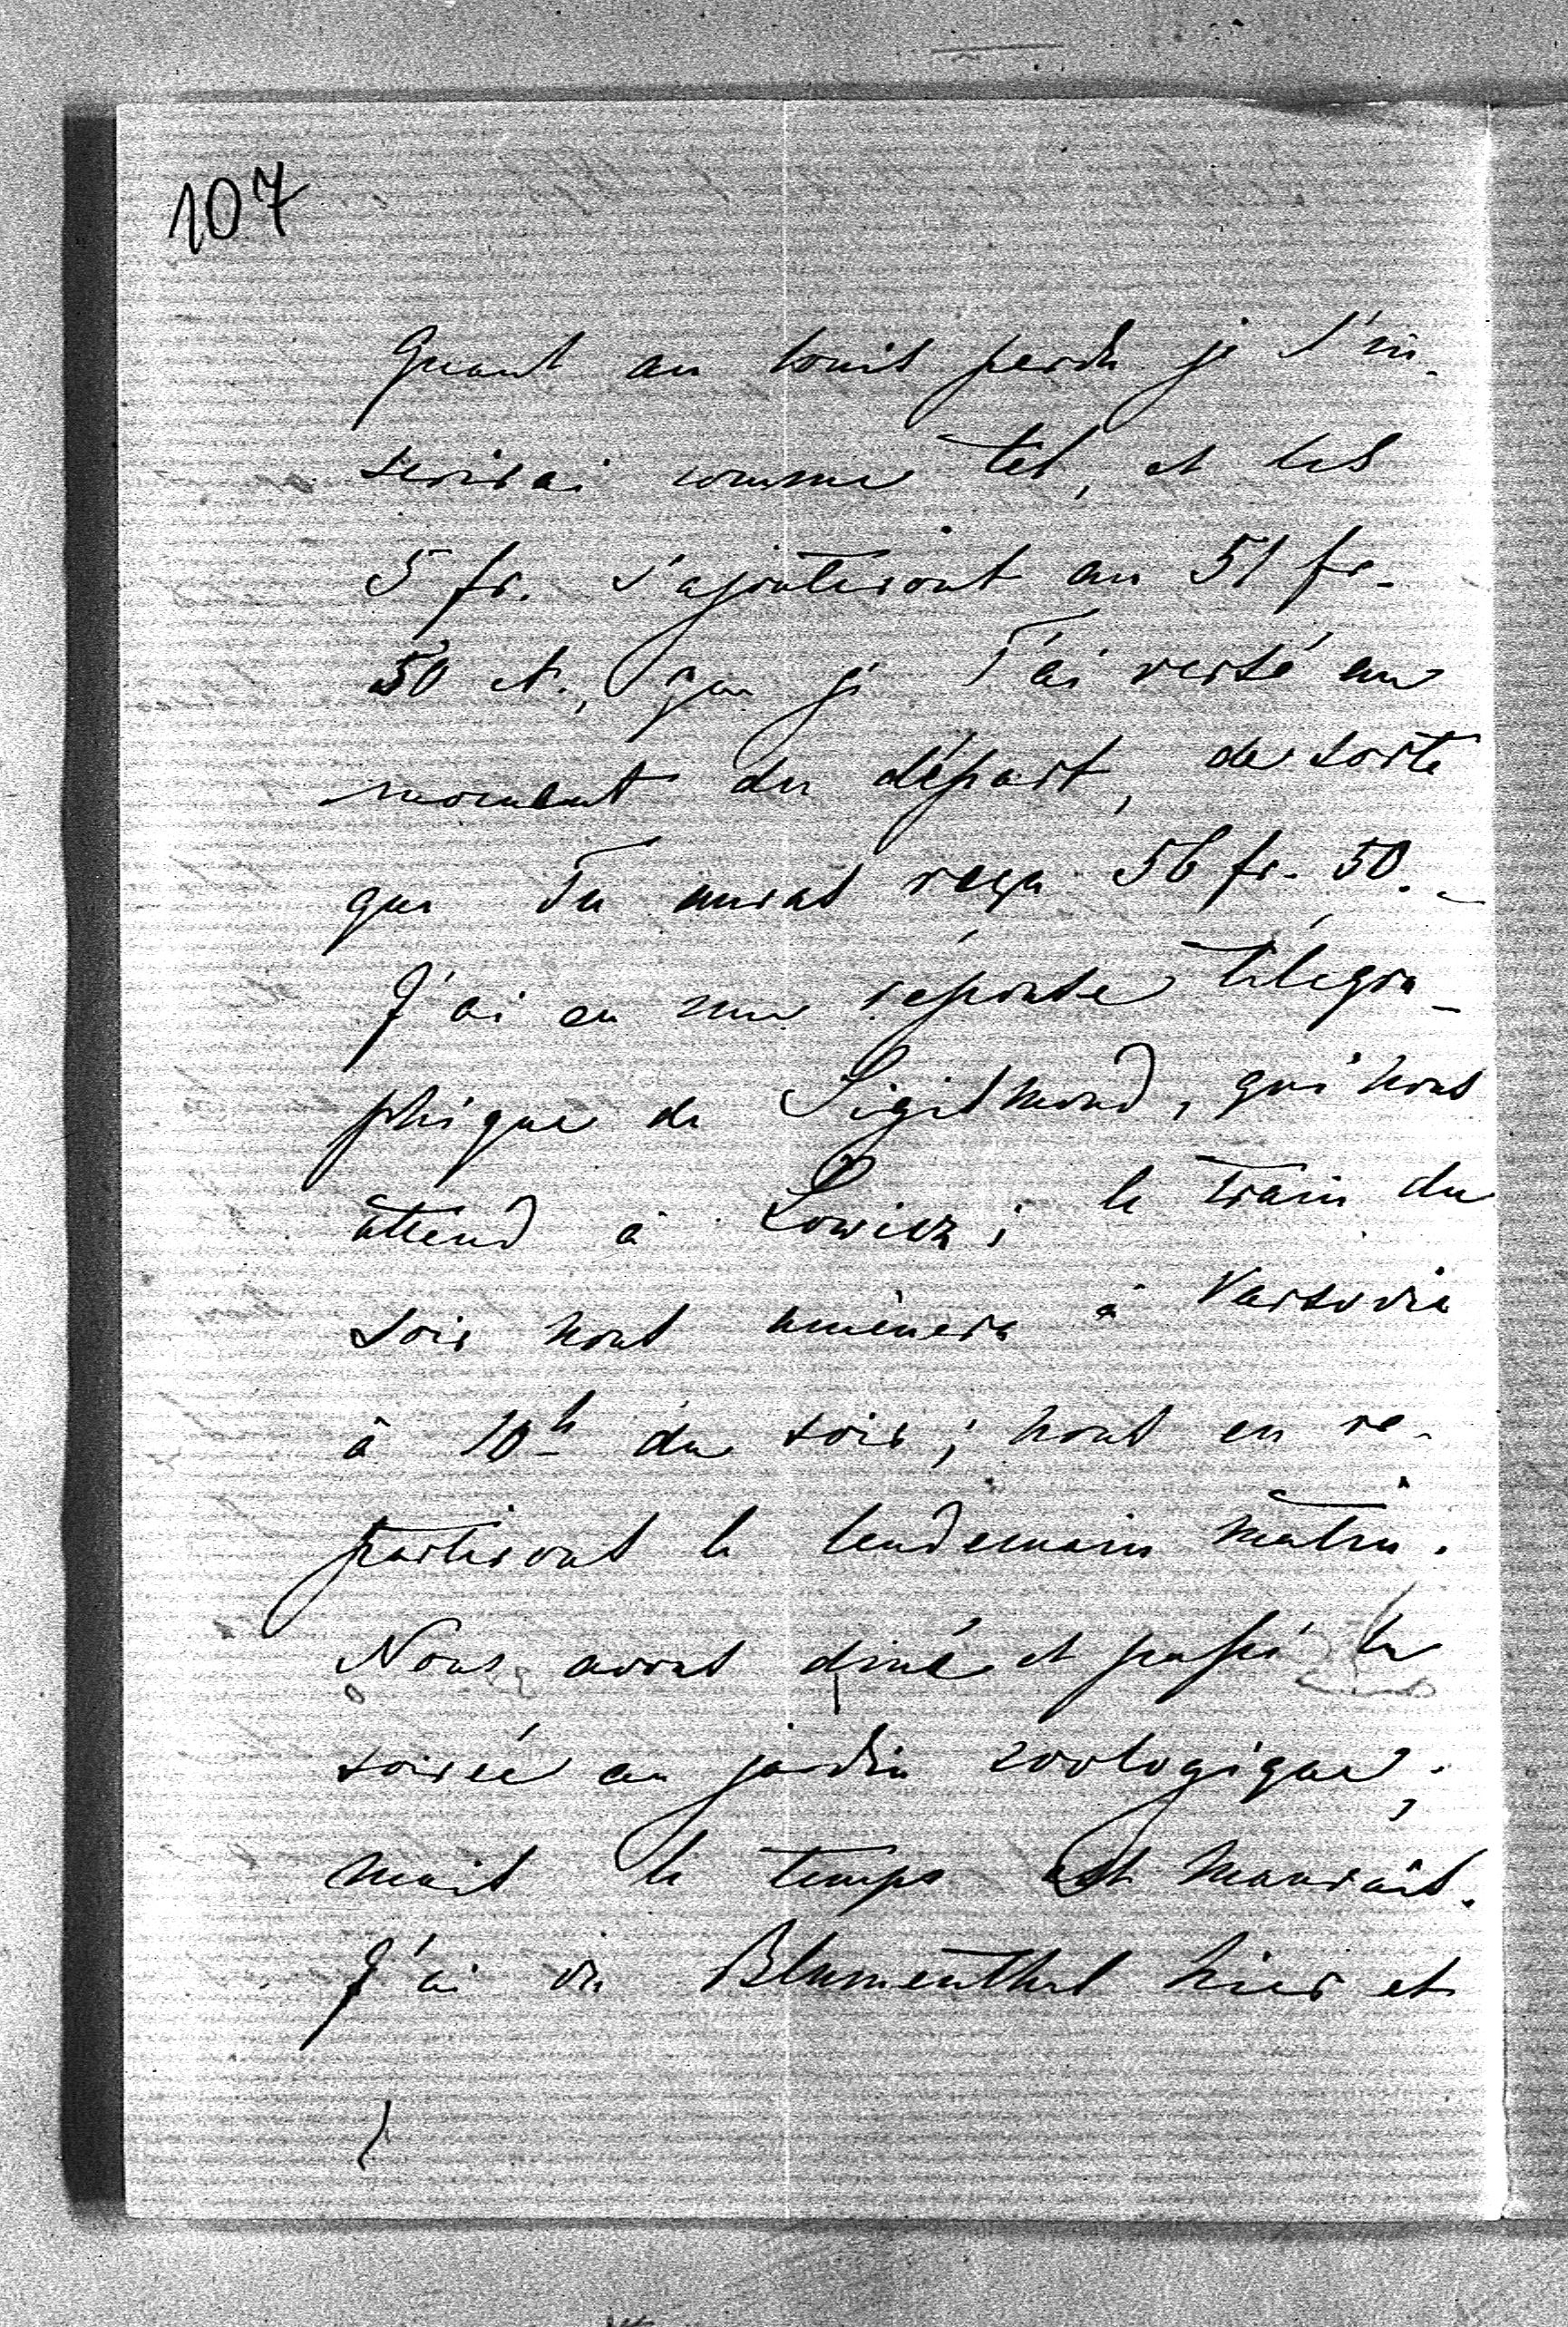 107
Quant au louis perdu je l'in-
scrirai comme tel, et les
5 fr. s'ajouteront au 51 fr.
50 ct., que je T'ai versé au
moment du départ, de sorte
que Tu auras reçu 56 fr. 50.-
J'ai eu une réponse télégra-
phique de Sigismond, qui nous
attend à Lowicz; le train du
soir nous amènera à Varsovie
à 10h du soir; nous en re-
partirons le lendemain matin.
Nous avons diné et passé la
soirée au jardin zoologique;
mais le temps est mauvais.
J'ai vu Blumenthal hier et